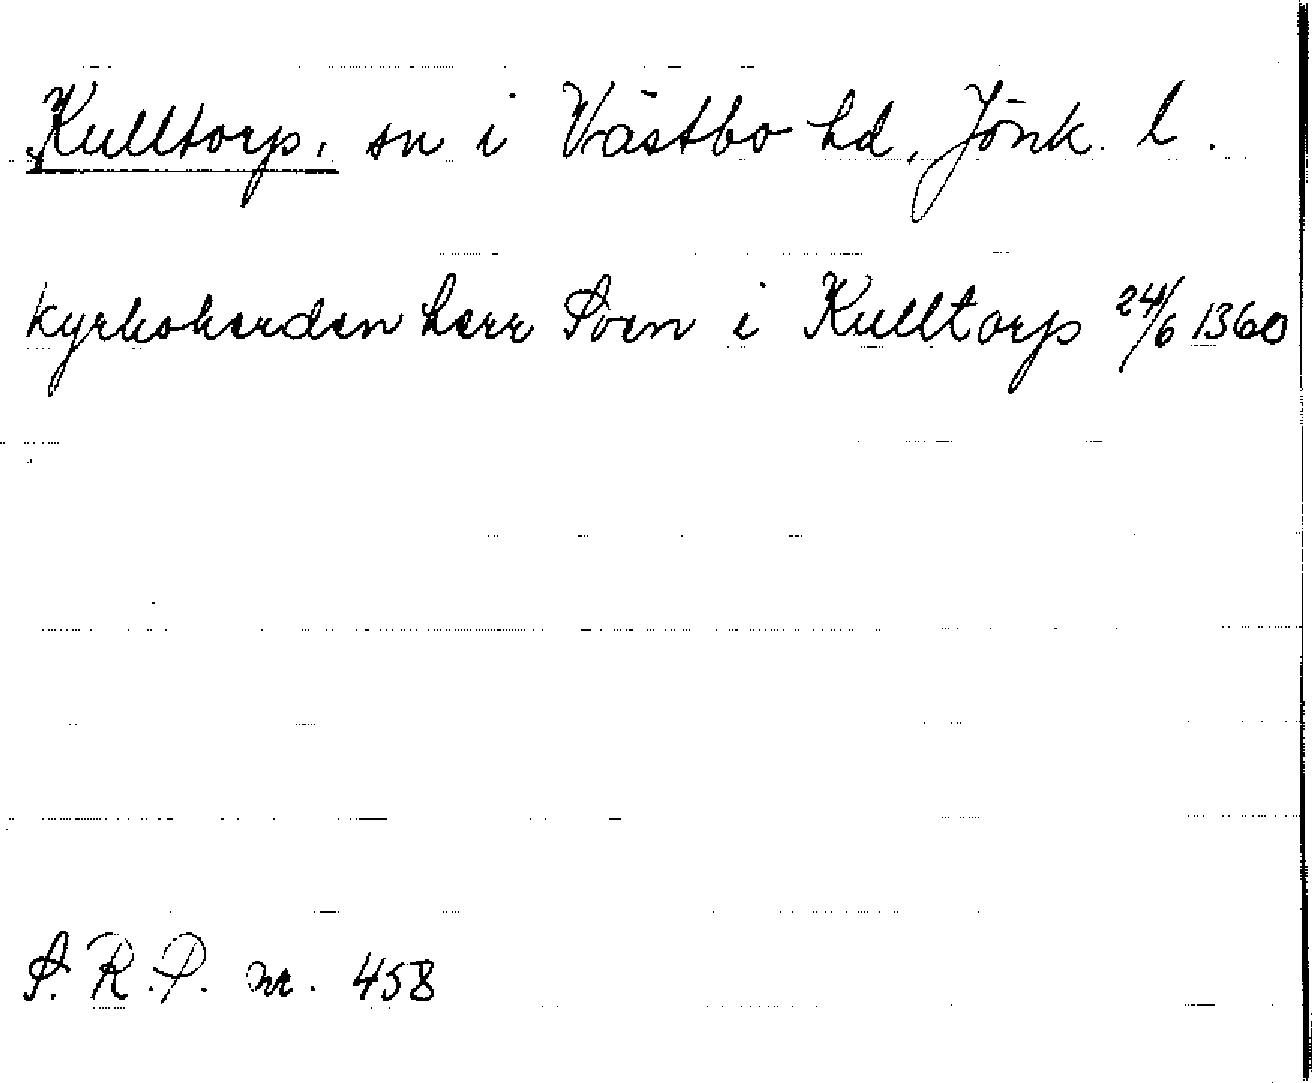 Kulltorp, sn i Västbo hd, Jönk. l.
kyrkoherden herr Sven i Kulltorp 24/6 1360
S. R. P. nr. 458